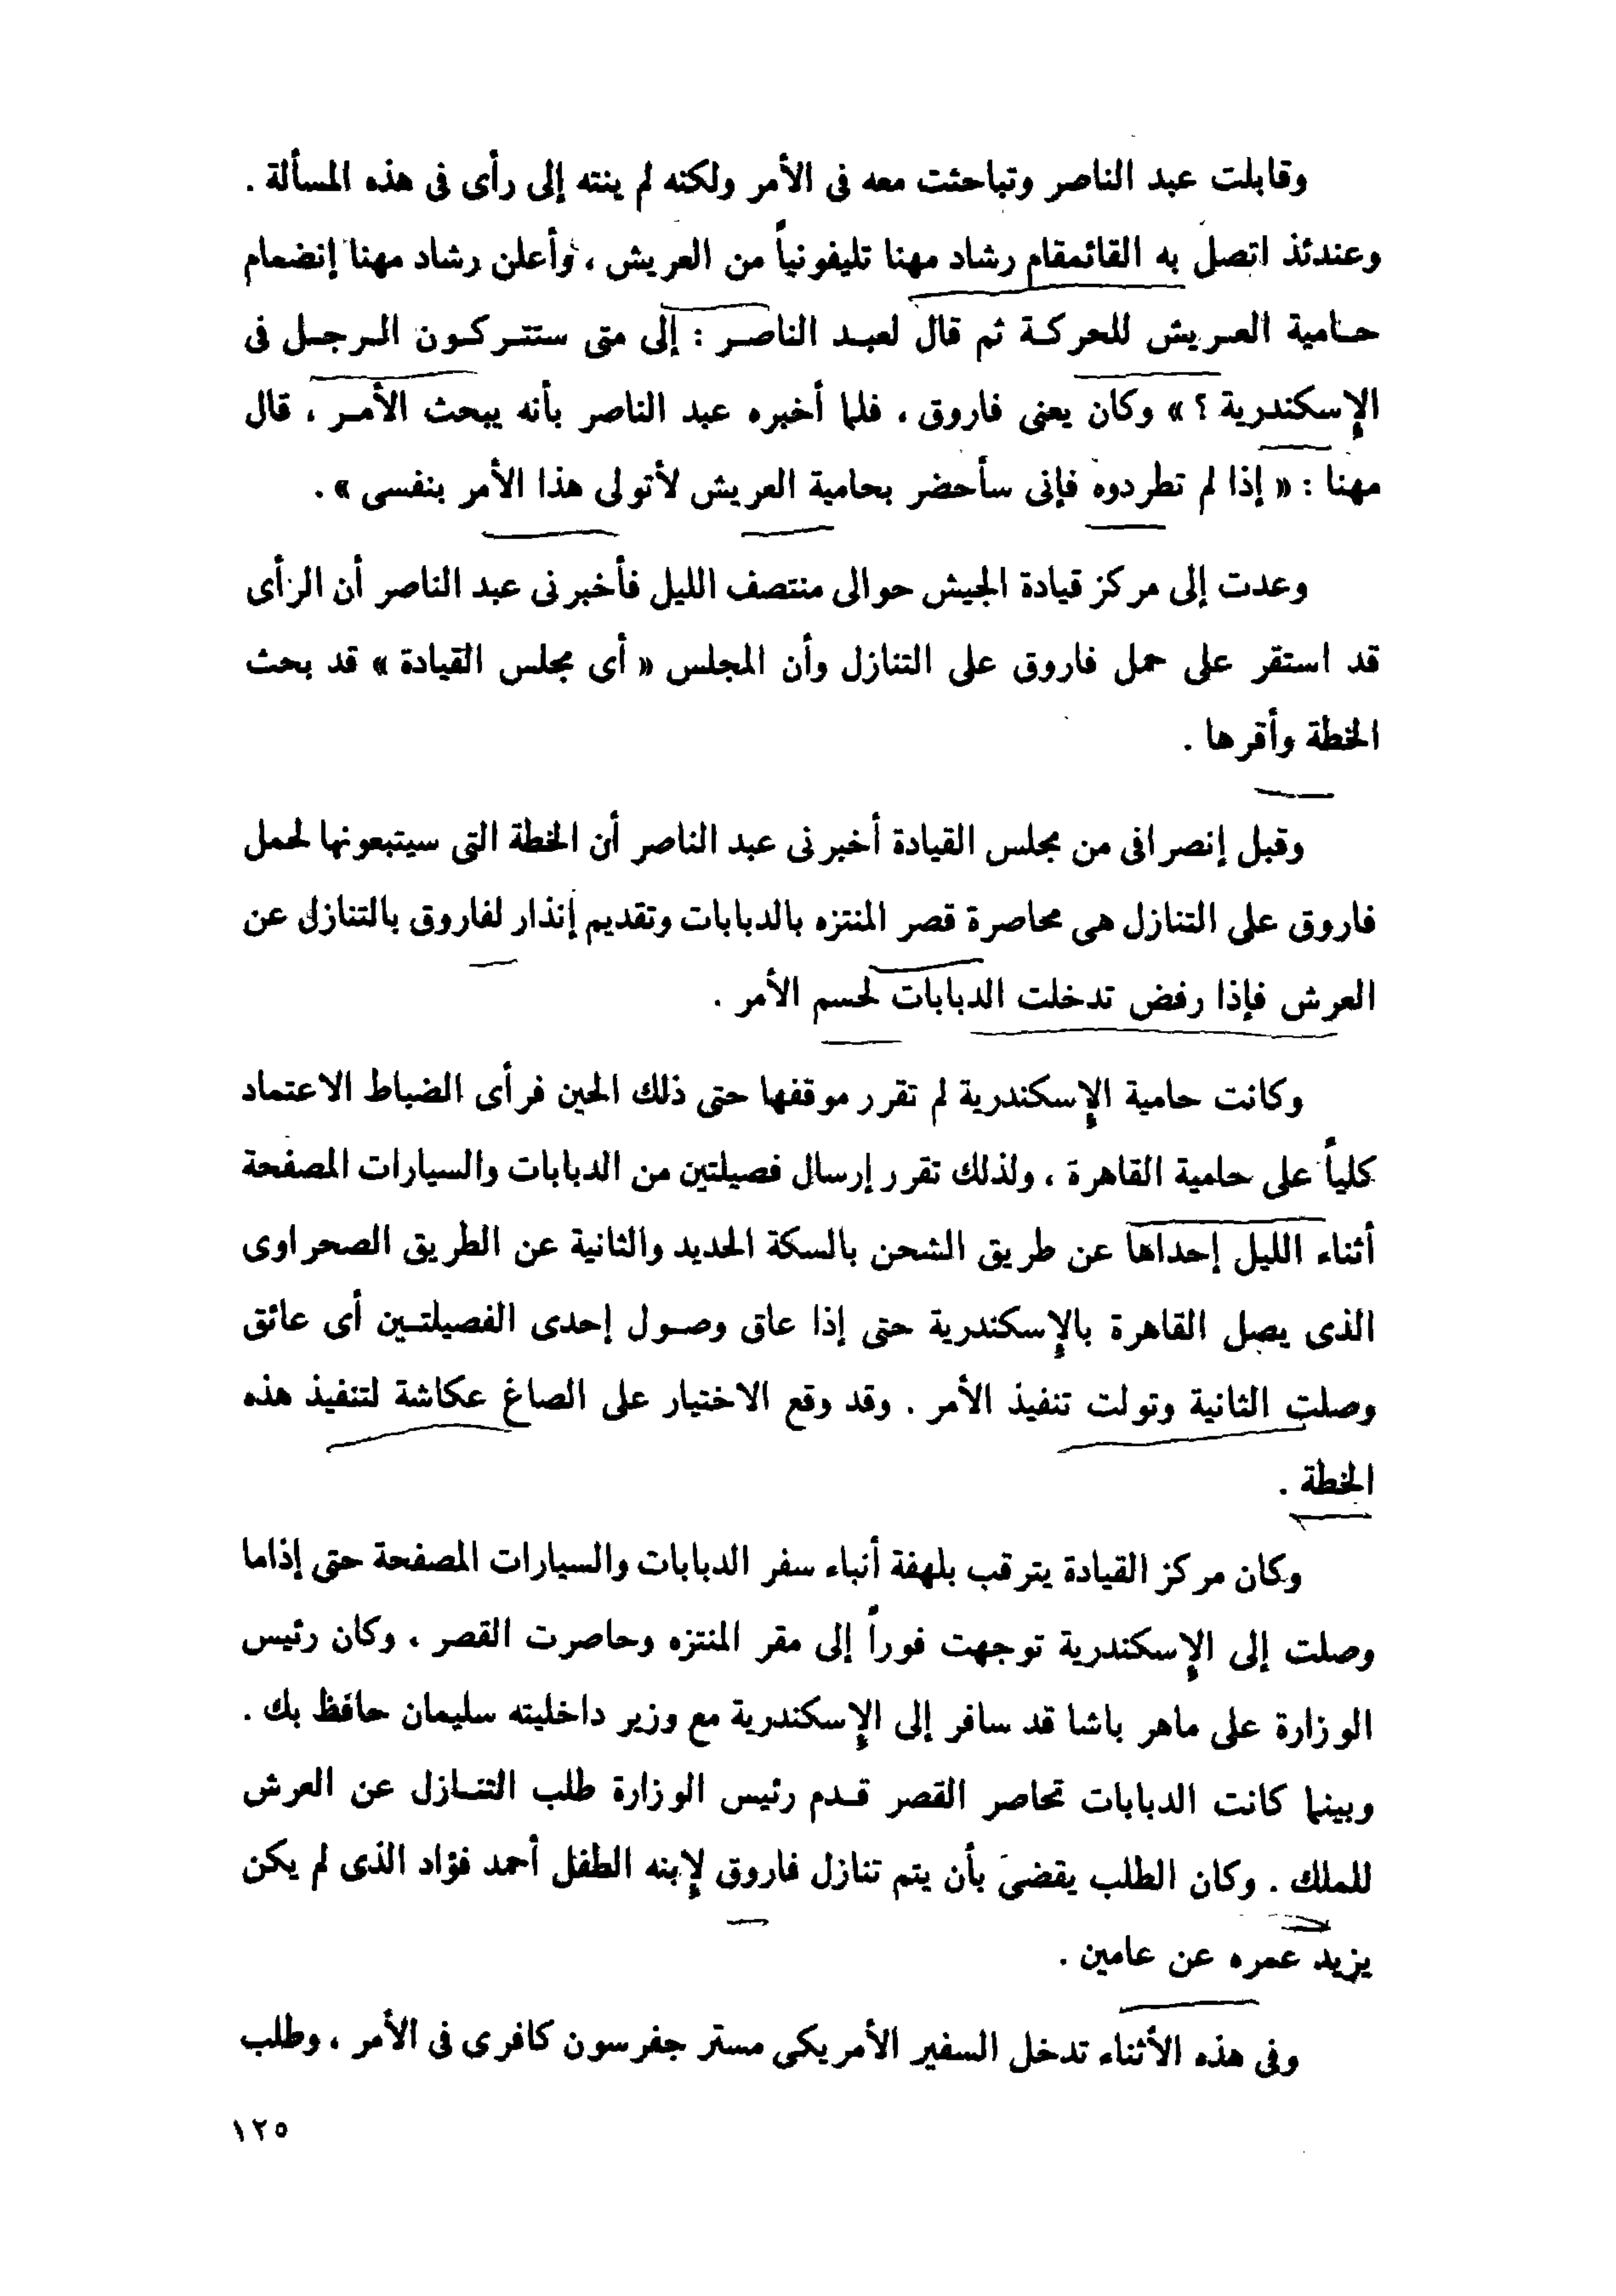 وقابلت عبد الناصر وتباحثت معه فى الأمر ولكنه لم ينته إلى رأى فى هذه المسألة .
وعندئذ اتصل به القائمقام رشاد مهنا تليفونياً من العريش ، وأعلن رشاد مهنا إنضمام
حامية العريش للحركة ثم قال لعبد الناصر : إلى متى ستتركون الرجل فى
الإسكندرية ؟ » وكان يعنى فاروق ، فلما أخبره عبد الناصر بأنه يبحث الأمر ، قال
مهنا : « إذا لم تطردوه فإنى سأحضر بحامية العريش لأتولى هذا الأمر بنفسى » .
وعدت إلى مركز قيادة الجيش حوالى منتصف الليل فأخبرنى عبد الناصر أن الرأى
قد استقر على حمل فاروق على التنازل وأن المجلس « أى مجلس القيادة » قد بحث
الخطة وأقرها .
وقبل إنصرافى من مجلس القيادة أخبرنى عبد الناصر أن الخطة التى سيتبعونها لحمل
فاروق على التنازل هى محاصرة قصر المنتزه بالدبابات وتقديم إنذار لفاروق بالتنازل عن
العرش فإذا رفض تدخلت الدبابات لحسم الأمر .
وكانت حامية الإسكندرية لم تقرر موقفها حتى ذلك الحين فرأى الضباط الاعتماد
كلياً على حامية القاهرة ، ولذلك تقرر إرسال فصيلتين من الدبابات والسيارات المصفحة
أثناء الليل إحداها عن طريق الشحن بالسكة الحديد والثانية عن الطريق الصحراوى
الذى يصل القاهرة بالإسكندرية حتى إذا عاق وصول إحدى الفصيلتين أى عائق
وصلت الثانية وتولت تنفيذ الأمر . وقد وقع الاختيار على الصاغ عكاشة لتنفيذ هذه
الخطة .
وكان مركز القيادة يترقب بلهفة أنباء سفر الدبابات والسيارات المصفحة حتى إذاما
وصلت إلى الإسكندرية توجهت فوراً إلى مقر المنتزه وحاصرت القصر ، وكان رئيس
الوزارة على ماهر باشا قد سافر إلى الإسكندرية مع وزير داخليته سليمان حافظ بك .
وبينما كانت الدبابات تحاصر القصر قدم رئيس الوزارة طلب التنازل عن العرش
للملك . وكان الطلب يقضى بأن يتم تنازل فاروق لإبنه الطفل أحمد فؤاد الذى لم يكن
يزيد عمره عن عامين .
وفى هذه الأثناء تدخل السفير الأمريكى مستر جفرسون كافرى فى الأمر ، وطلب
١٢٥